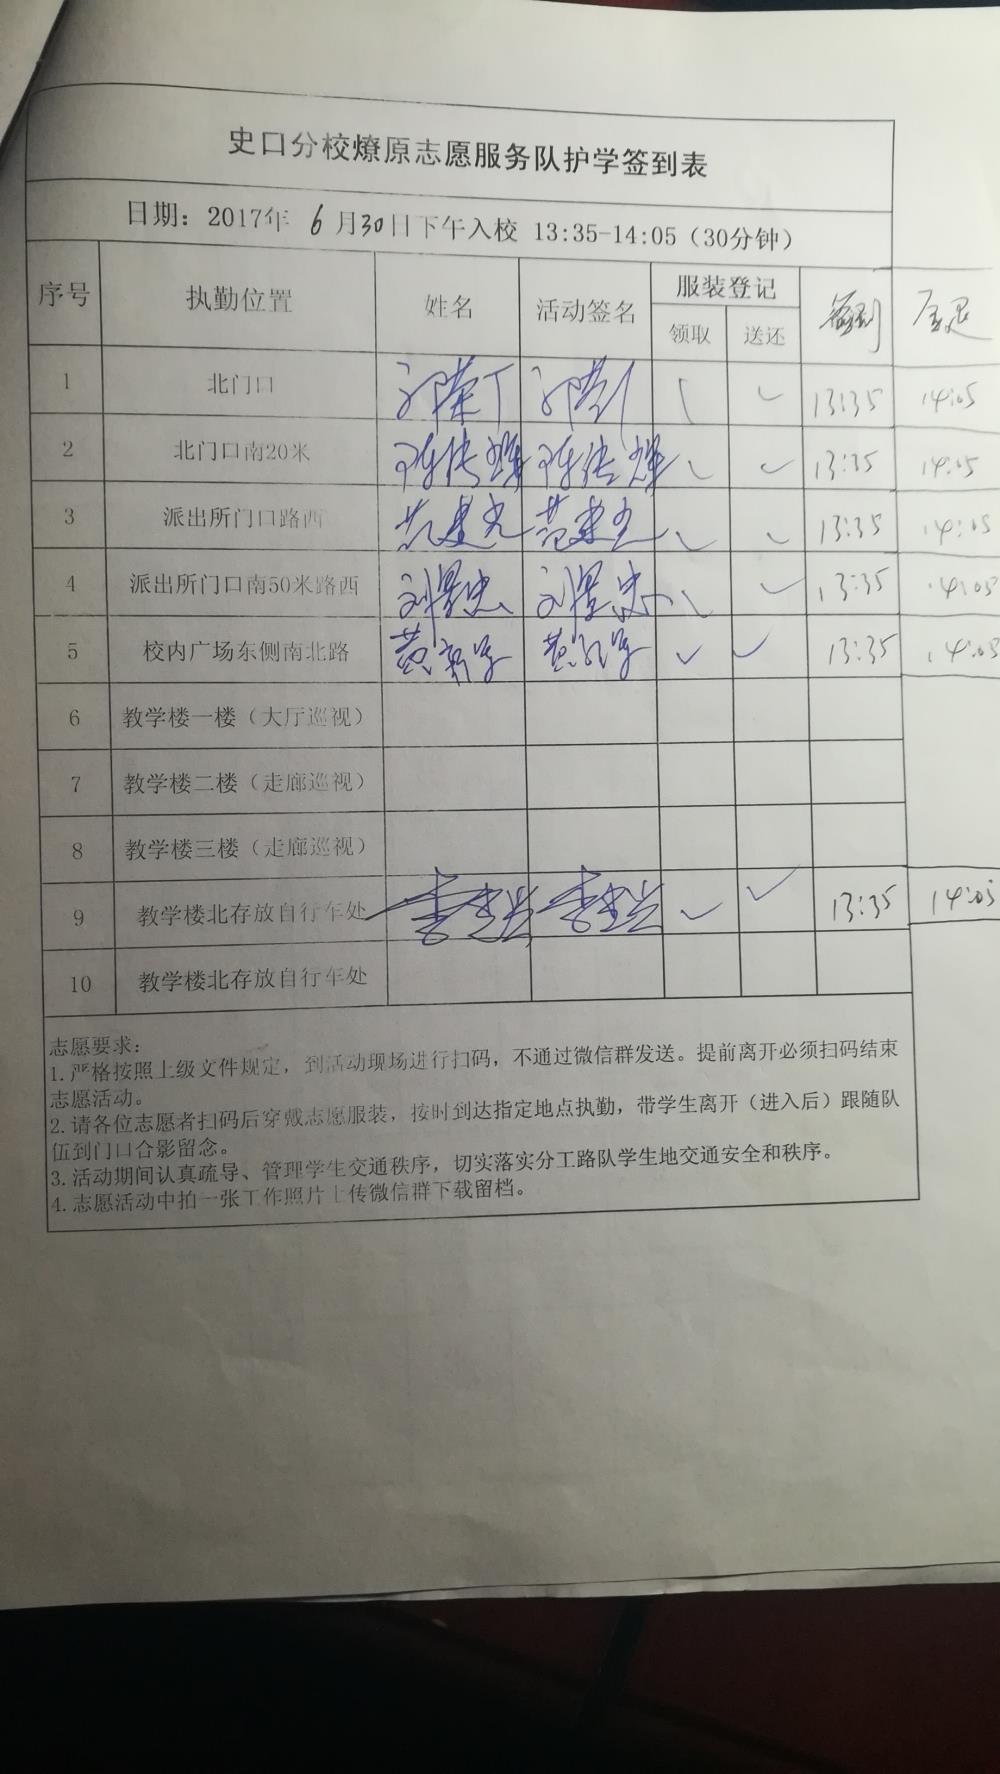 史口分校燎原志愿服务队护学签到表
日期：2017年 6 月30日下午入校 13:35-14:05（30分钟）
序号 执勤位置 姓名 活动签名 服装登记 签到
领取 送还
1 北门口 13:35 14:05
2 北门口南20米 13:35 14:05
3 派出所门口路西 13:35 14:05
4 派出所门口南50米路西 刘景忠 刘景忠 13:35 14:05
5 校内广场东侧南北路 13:35 14:05
6 教学楼一楼（大厅巡视）
7 教学楼二楼（走廊巡视）
8 教学楼三楼（走廊巡视）
9 教学楼北存放自行车处 13:35 14:05
10 教学楼北存放自行车处
志愿要求：
1.严格按照上级文件规定，到活动现场进行扫码，不通过微信群发送。提前离开必须扫码结束
志愿活动。
2.请各位志愿者扫码后穿戴志愿服装，按时到达指定地点执勤，带学生离开（进入后）跟随队
伍到门口合影留念。
3.活动期间认真疏导、管理学生交通秩序，切实落实分工路队学生地交通安全和秩序。
4.志愿活动中拍一张工作照片上传微信群下载留档。